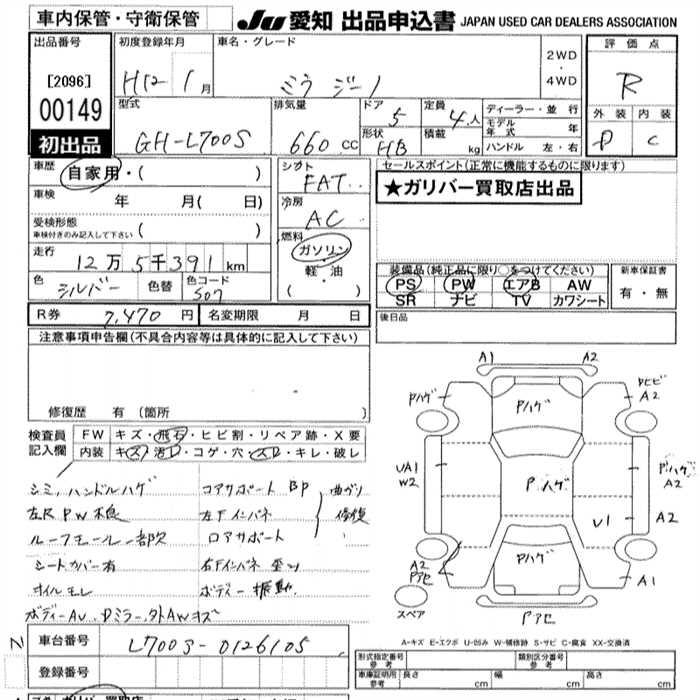 車内保管・守衛保管 JU 愛知 出品申込書 JAPAN USED CAR DEALERS ASSOCIATION
出品番号 初度登録年月 車名・グレード 評価点
[2096] H12年 1月 ミラ ジーノ 2WD・4WD R
00149 型式 排気量 ドア 定員 ディーラー・並行 外装 内装
GH-L700S 660 cc 5 4人 モデル年式 年 D C
初出品 形状 HB 積載 kg ハンドル 左・右
車歴 自家用・( ) シフト FAT セールスポイント(正常に機能するものに限ります)
車検 年 月( 日) 冷房 AC ★ガリバー買取店出品
受検形態 車検付きのみ記入して下さい ( )
走行 12万5千391km 燃料 ガソリン・軽油 ( ・ )
装備品(純正品に限り○をつけてください) 新車保証書
色 シルバー 色替 色コード S07 PS PW エアB AW 有・無
SR ナビ TV カワシート
R券 7,470円 名変期限 月 日 後日品
注意事項申告欄(不具合内容等は具体的に記入して下さい)
修復歴 有 (箇所
検査員記入欄 FW キズ・飛石・ヒビ割・リペア跡・X要
内装 キズ・汚れ・コゲ・穴・スレ・キレ・破レ
シミ, ハンドルハゲ コアサポート BP 曲がり
左R PW不良 左Fインパネ 修復
ルーフモール一部欠 ロアサポート
シートカバー有 右Fインパネ 歪ツ
オイルモレ ボディー振動
A1 A2
Pハゲ Pハゲ A2
UA1 W2 Pハゲ Pハゲ A2
U1 A2
A2 Pアセ Pハゲ A1
スペア Pアセ
A-キズ E-エクボ U-凹み W-補修跡 S-サビ C-腐食 XX-交換済
車台番号 L700S-0126105
登録番号
形式指定番号 参考 類別区分番号 参考
車庫証明用 参考 長さ cm 幅 cm 高さ cm